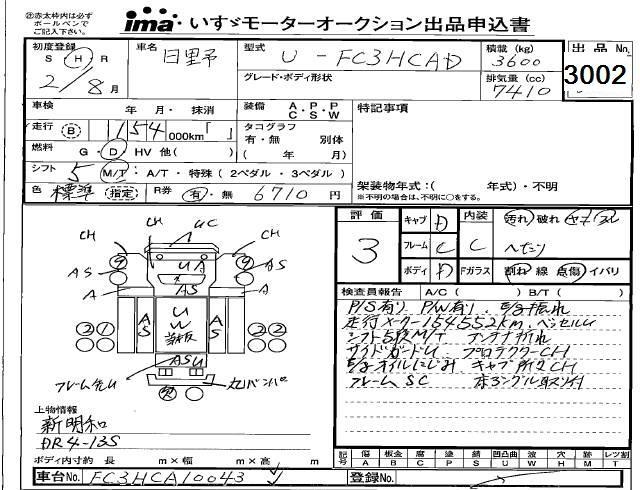 ㊟赤太枠内は必ず
ボールペンで
ご記入下さい。
ima いすゞモーターオークション出品申込書
初度登録 車名 日野 型式 U - FC3HCAD 積載 (kg) 3600 出品No.
S H R 2/8月 グレード・ボディ形状 排気量 (cc) 7410 3002
車検 年 月・ 抹消 装備 A・P・P C S W 特記事項
走行 B 154 000km「 」 タコグラフ 有・無 別体
燃料 G・D HV 他( ) ( 年 月)
シフト 5 M/T・A/T・特殊 (2ペダル・3ペダル) 架装物年式:( 年式)・不明
色 標準 指定 R券 有・無 6710 円 ※不明の場合は、不明に○をする。
評価 3 キャブ D 内装 C 汚れ 破れ
フレーム C
ボディ D Fガラス 割れ 線 点傷 イバリ
CH UC CH
9 UA 9
AS AS AS
A A
A S U W A S
ASU
フレーム
検査員報告 A/C( ) B/T( )
P/S有り P/W有り
走行メーター154552km
シフト5段M/T アンテナ折れ
サイドガードU プロテクターCH
E/gオイルにじみ
フレームSC
上物情報
新明和
DR4-13S
ボディ内寸約 長 m×幅 m×高 m
記号 傷 A 板金 B 補 C 塗 P 錆 S 凹凸曲 U 波 W 穴 H 跡 M レツ割 T
車台No. FC3HCA10043 登録No.